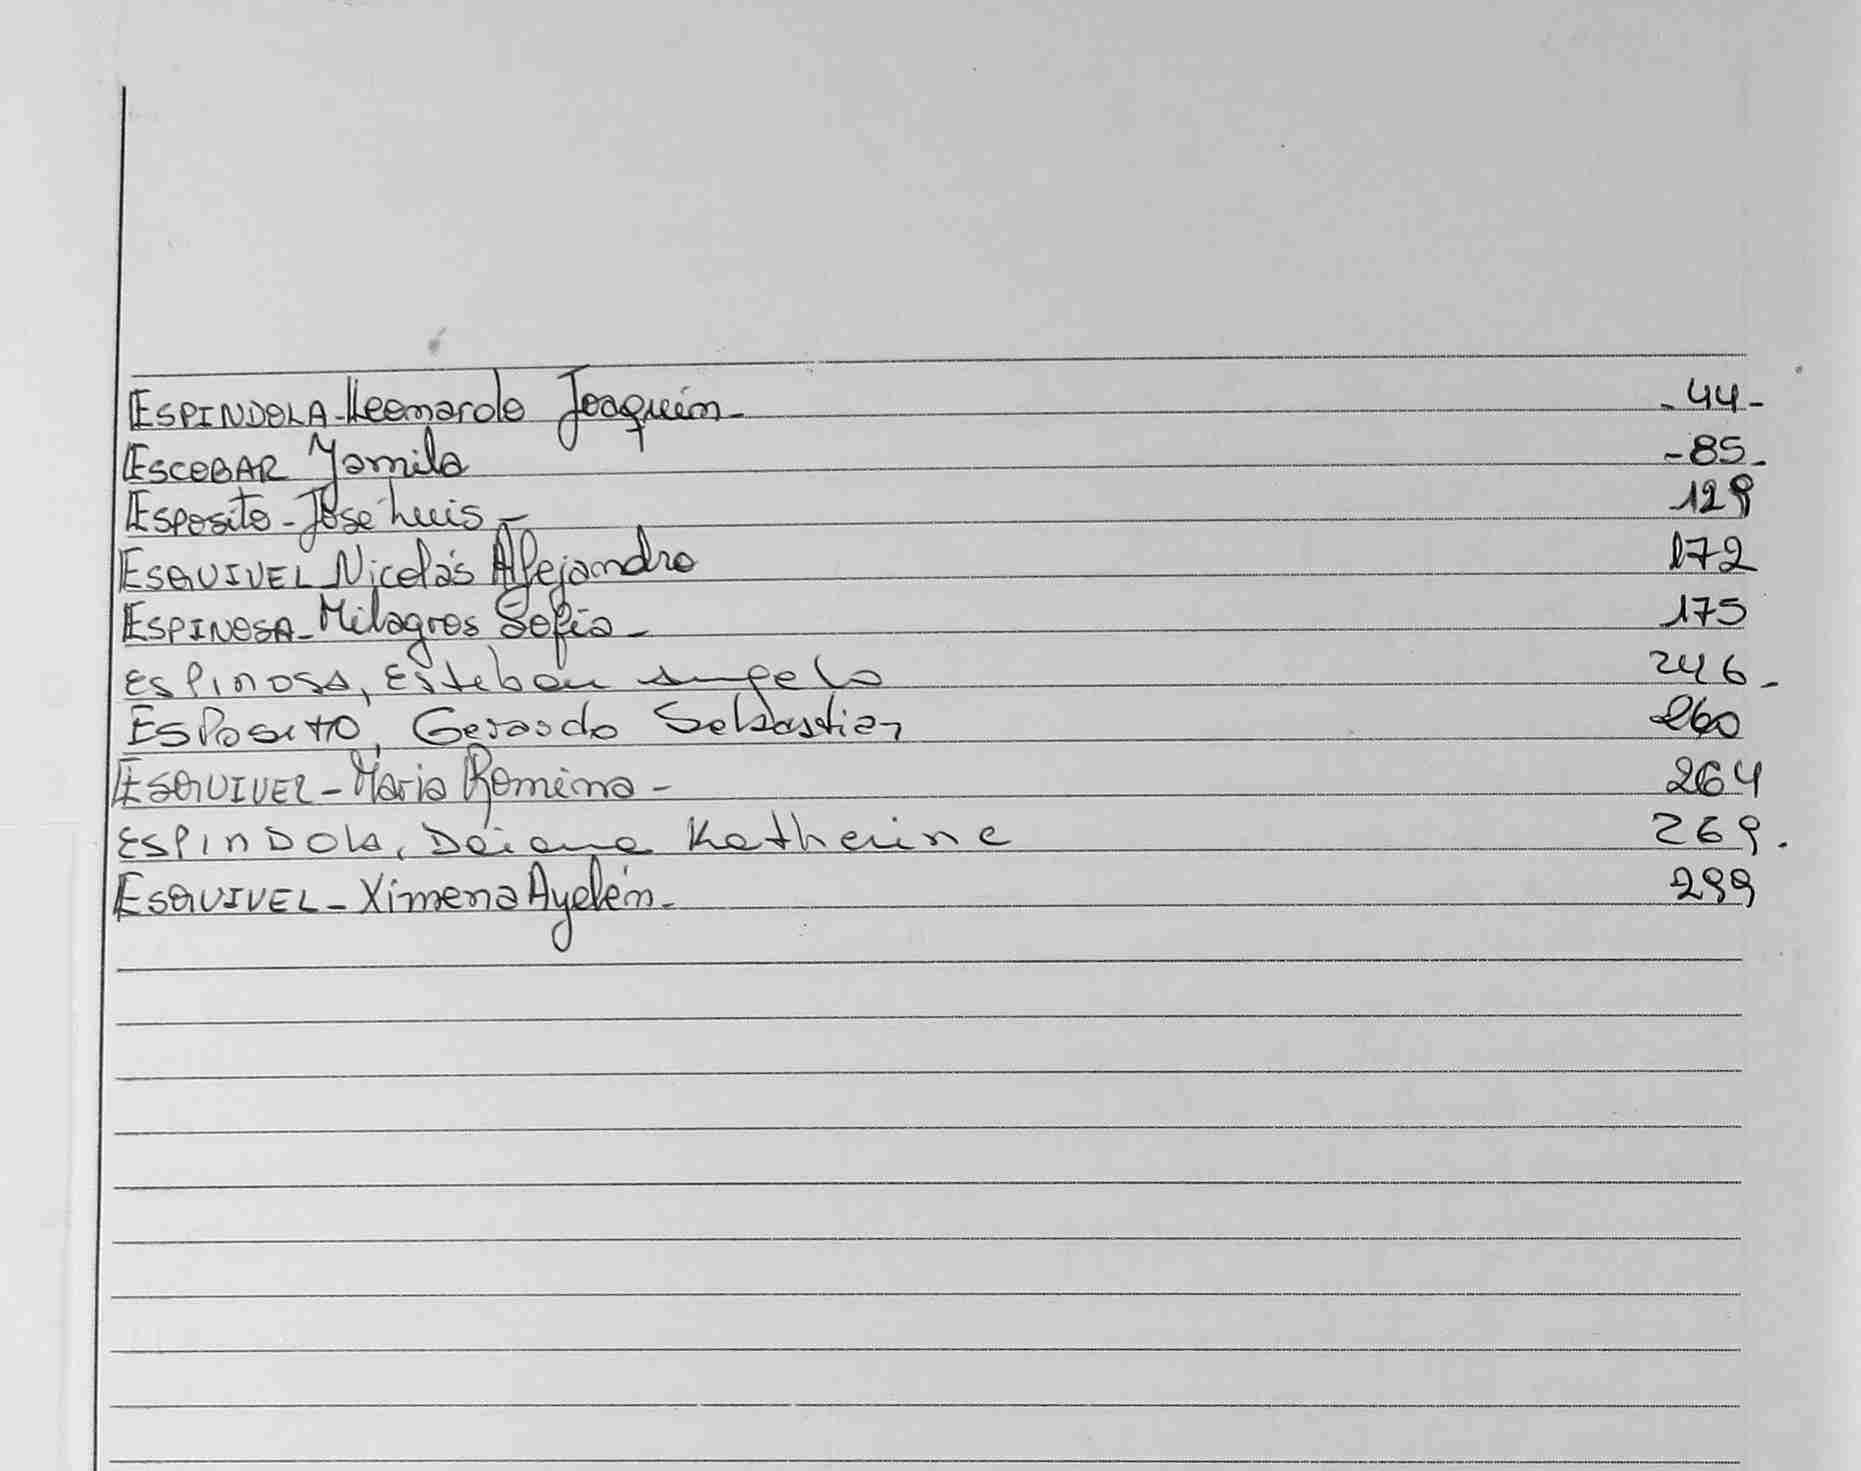 ESPINDOLA - Leonardo Joaquín - - 44 -
ESCOBAR Yamila - 85 -
Esposito - José Luis - 129
ESQUIVEL Nicolás Alejandro 172
ESPINOSA - Milagros Sofía - 175
ESPINOSA, Esteban Angelo 246 -
ESPOSITO, Gerardo Sebastian 260
ESQUIVEL - María Romina - 264
ESPINDOLA, Daiana Katherine 269.
ESQUIVEL - Ximena Ayelén - 299